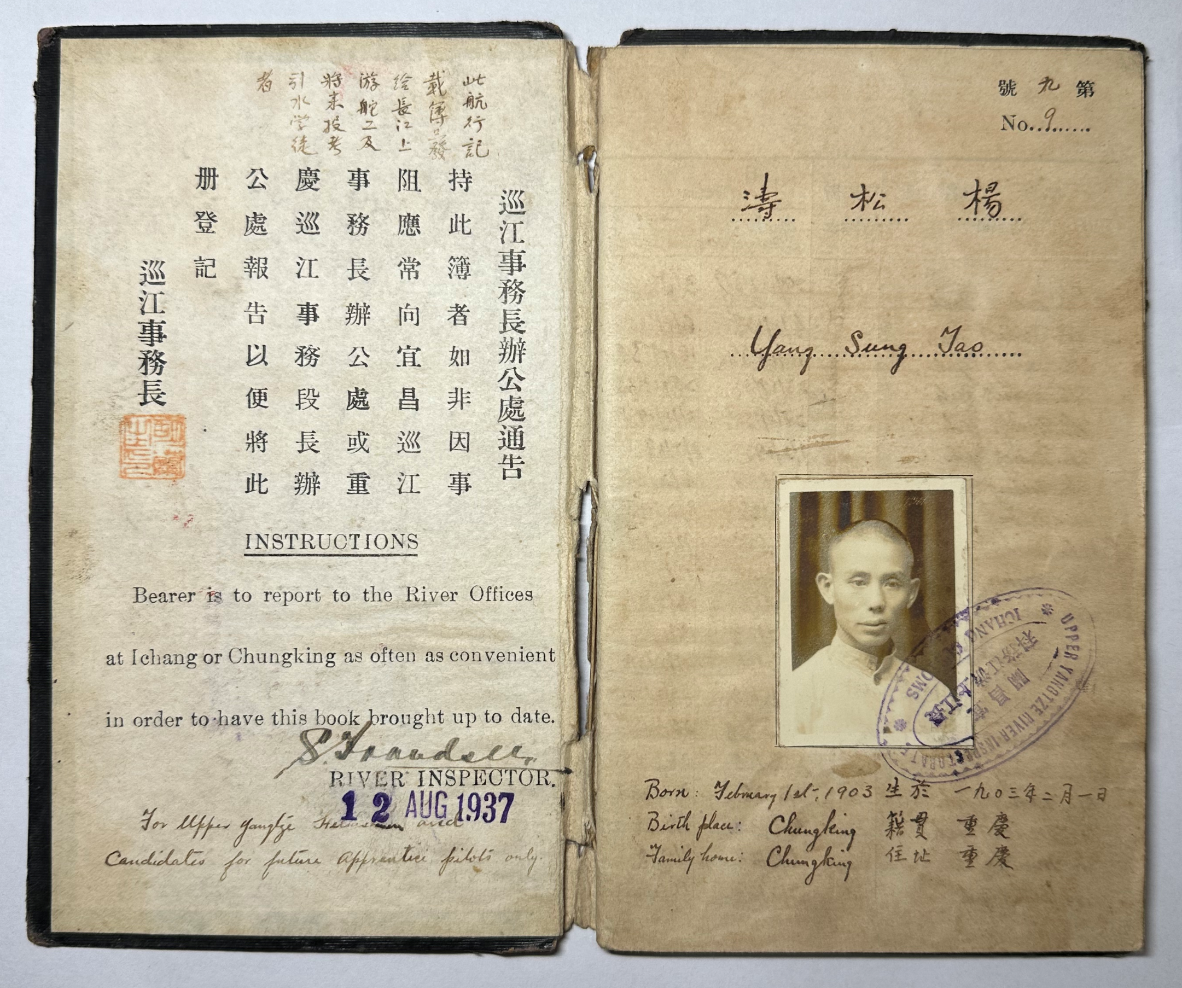 此航行記
載簿發
給長江上
游舵工及
將来投考
引水学徒
者
巡江事務長辦公處通告
持此簿者如非因事
阻應常向宜昌巡江
事務長辦公處或重
慶巡江事務段長辦
公處報告以便將此
册登記
巡江事務長
INSTRUCTIONS
Bearer is to report to the River Offices
at Ichang or Chungking as often as convenient
in order to have this book brought up to date.
RIVER INSPECTOR.
12 AUG 1937
For Upper Yangtze and
Candidates for future apprentice pilots only.
第九號
No. 9
楊松濤
Yang Sung Tao
UPPER YANGTZE RIVER INSPECTORATE
ICHANG
Born: February 1st, 1903 生於 一九〇三年二月一日
Birth place: Chungking 籍貫 重慶
Family home: Chungking 住址 重慶